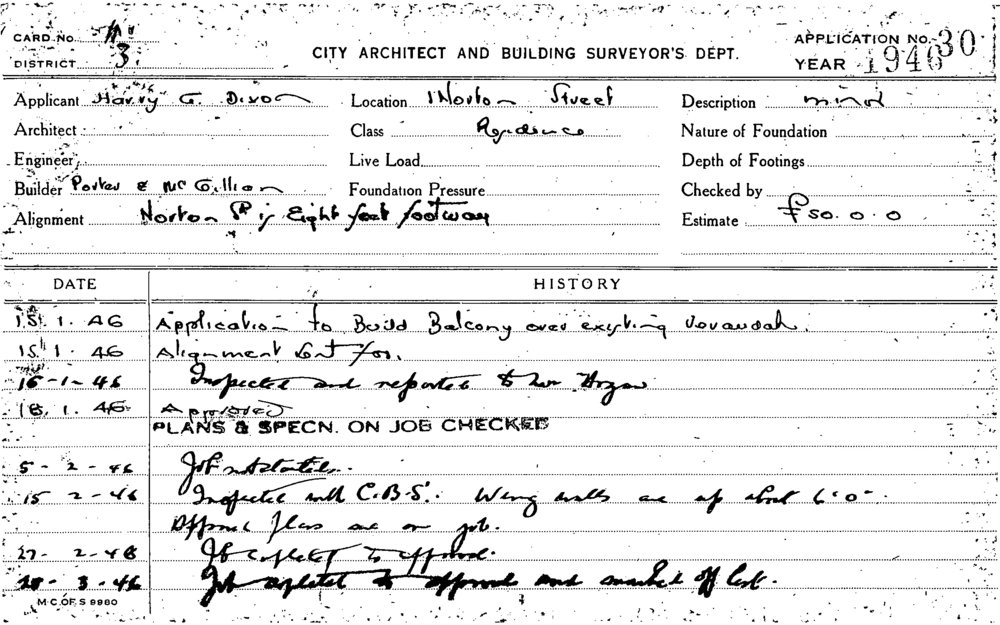 CARD No. A.
DISTRICT 3.
CITY ARCHITECT AND BUILDING SURVEYOR'S DEPT.
APPLICATION No. 30
YEAR 1946
Applicant Harry G. Dixon Location Norton Street Description minor
Architect Class Residence Nature of Foundation
Engineer Live Load Depth of Footings
Builder Porter & McGillion Foundation Pressure Checked by
Alignment Norton St is Eight foot footway Estimate £50.0.0
DATE HISTORY
15.1.46 Application to Build Balcony over existing verandah.
15.1.46 Alignment sent for.
16-1-46 Inspected and reported to
18.1.46 Approved
PLANS & SPECN. ON JOB CHECKED
5-2-46 Job not started.
15 2-46 Inspected with C.B.S. Wing walls are up about 6'0"
Approved plans are on job.
27-2-46 Job completed to approval.
28-3-46 Job completed to approval and marked off list.
M.C. OF S 9980